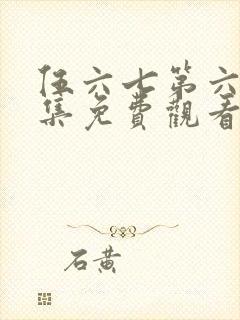 伍六七第六
集免費觀看
石黄